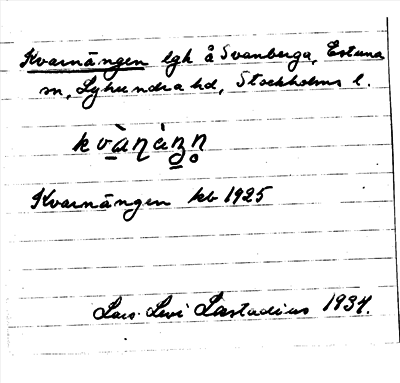 Kvarnängen lgh å Svanberga, Estuna
sn, Lyhundra hd, Stockholms l.
kvànàŋn
Kvarnängen kb 1925
Lars-Levi Læstadius 1934.